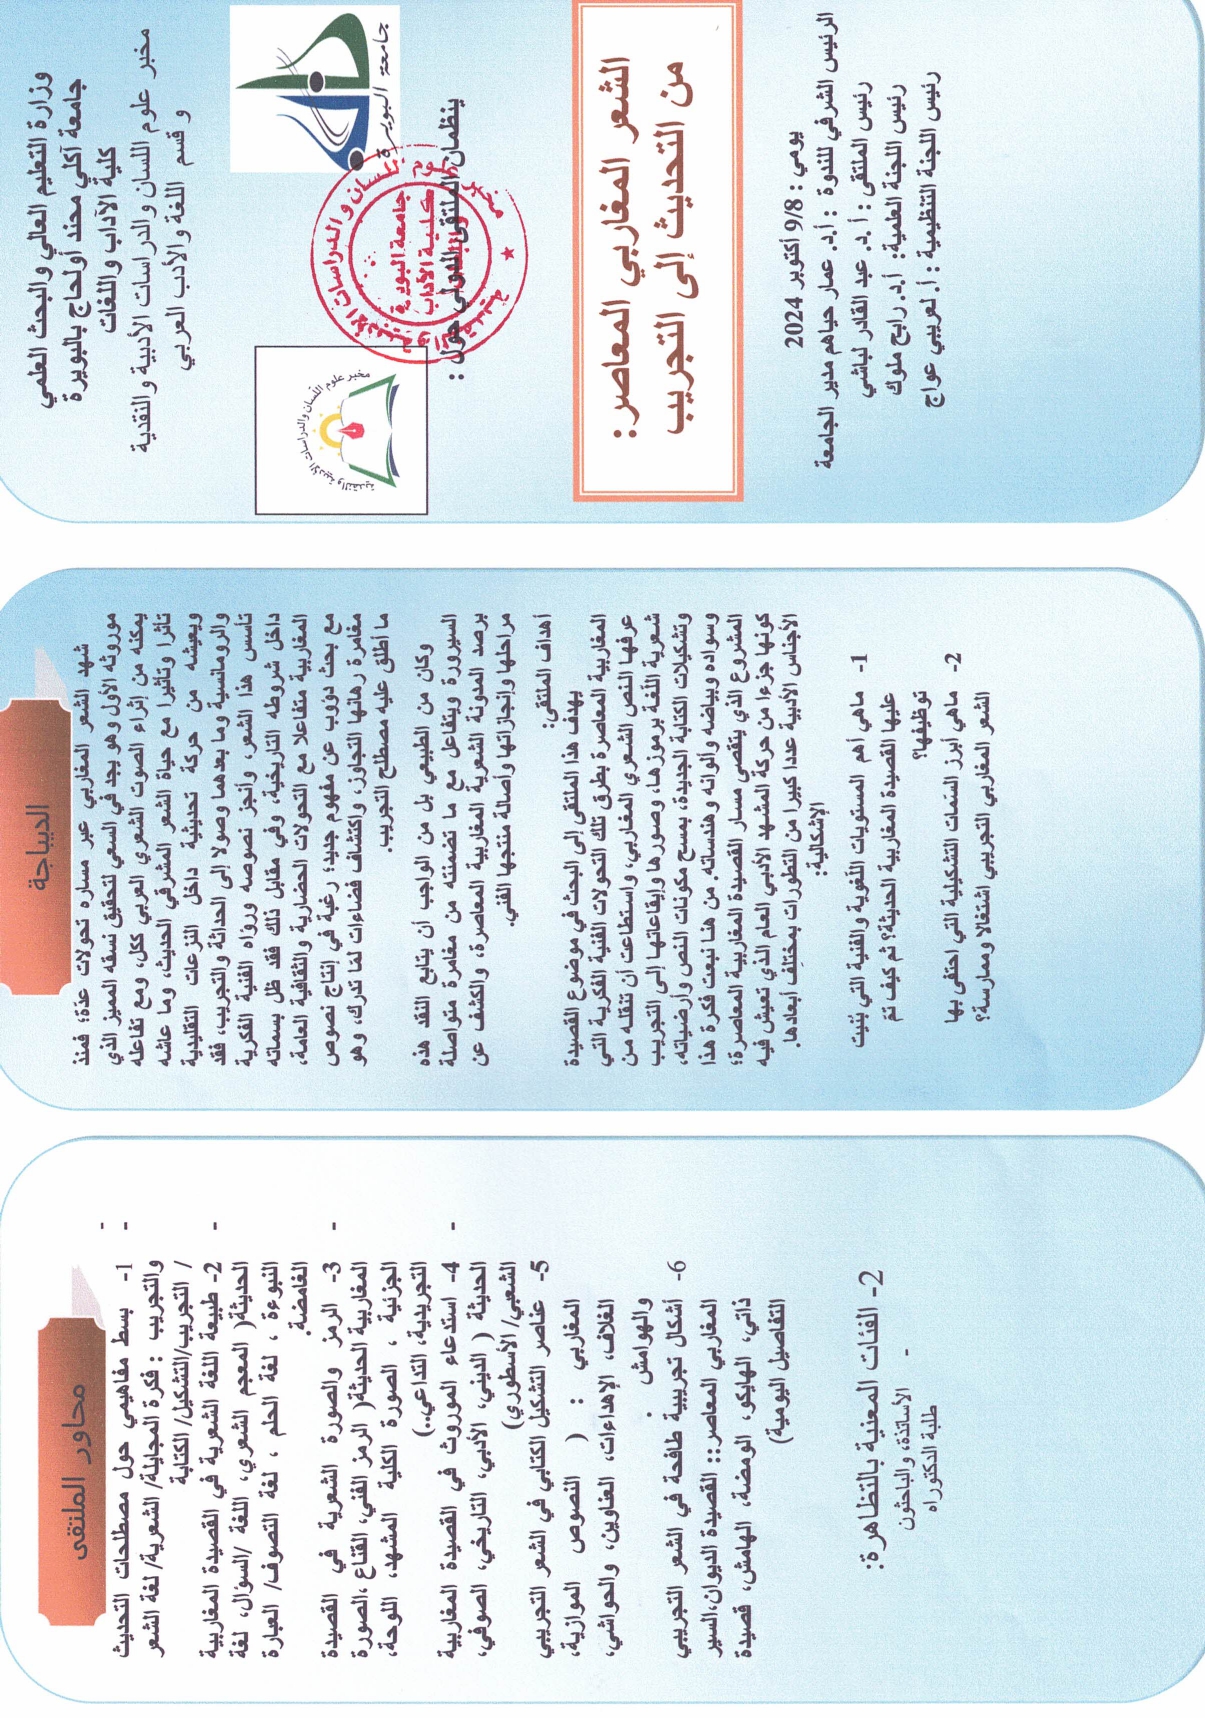 وزارة التعليم العالي والبحث العلمي
جامعة آكلي محند أولحاج بالبويرة
كلية الآداب واللغات
مخبر علوم اللسان والدراسات الأدبية والنقدية
و قسم اللغة والأدب العربي
جامعة البويرة
مخبر علوم اللسان والدراسات الأدبية والنقدية
مخبر علوم اللسان والدراسات الأدبية والنقدية
جامعة البويرة
كلية الآداب
واللغات
ينظمان الملتقى الدولي حول :
الشعر المغاربي المعاصر:
من التحديث إلى التجريب
يومي : 9/8 أكتوبر 2024
الرئيس الشرفي للندوة : أ.د. عمار حياهم مدير الجامعة
رئيس الملتقى : أ.د. عبد القادر لباشي
رئيس اللجنة العلمية: أ.د. رابح ملوك
رئيس اللجنة التنظيمية : أ. لعريبي عواج
الديباجة
شهد الشعر المغاربي عبر مساره تحولات عدّة؛ فمنذ
موروثه الأول وهو يجد في السعي لتحقيق نسقه المميز الذي
يمكنه من إثراء الصوت الشعري العربي ككل، ومع تفاعله
تأثرا وتأثيرا مع حياة الشعر المشرقي الحديث، وما عاشه
ويعيشه من حركة تحديثية داخل النزعات التقليدية
والرومانسية وما بعدهما وصولا إلى الحداثة والتجريب، فقد
تأسس هذا الشعر، وأنجز نصوصه ورؤاه الفنية الفكرية
داخل شروطه التاريخية، وفي مقابل ذلك فقد ظل بسماته
المغاربية متفاعلا مع التحولات الحضارية والثقافية العامة،
مع بحث دؤوب عن مفهوم جديد؛ رغبة في إنتاج نصوص
مغامرة رهانها التجاوز، واكتشاف فضاءات لمّا تدرك، وهو
ما أطلق عليه مصطلح التجريب.
وكان من الطبيعي بل من الواجب أن يتابع النقد هذه
السيرورة ويتفاعل مع ما تضمنته من مغامرة متواصلة
برصد المدونة الشعرية المغاربية المعاصرة، والكشف عن
مراحلها وإنجازاتها وأصالة منتجها الفني.
أهداف الملتقى:
يهدف هذا الملتقى إلى البحث في موضوع القصيدة
المغاربية المعاصرة بطرق تلك التحولات الفنية الفكرية التي
عرفها النص الشعري المغاربي، واستطاعت أن تنقله من
شعرية اللّغة برموزها، وصورها وإيقاعاتها إلى التجريب
وتشكيلات الكتابة الجديدة، بمسح مكونات النص وأرضياته،
وسواده وبياضه وألوانه وهندساته. من هنا نبعت فكرة هذا
المشروع الذي يتقصى مسار القصيدة المغاربية المعاصرة؛
كونها جزءا من حركة المشهد الأدبي العام الذي تعيش فيه
الأجناس الأدبية عددا كبيرا من التطورات بمختلف أبعادها.
الإشكالية:
1- ماهي أهم المستويات اللّغوية والفنية التي بُنيت
عليها القصيدة المغاربية الحديثة؟ ثم كيف تمّ
توظيفها؟
2- ماهي أبرز السمات التشكيلية التي احتفى بها
الشعر المغاربي التجريبي اشتغالا وممارسة؟
محاور الملتقى
-
- 1- بسط مفاهيمي حول مصطلحات التحديث
والتجريب : فكرة المجايلة/ الشعرية/ لغة الشعر
/ التجريب/التشكيل/ الكتابة
- 2- طبيعة اللغة الشعرية في القصيدة المغاربية
الحديثة( المعجم الشعري، اللغة /السؤال، لغة
النبوءة ، لغة الحلم ، لغة التصوف/ العبارة
الغامضة.
- 3- الرمز والصورة الشعرية في القصيدة
المغاربية الحديثة( الرمز الفني، القناع ،الصورة
الجزئية ، الصورة الكلية المشهد، اللوحة،
التجريدية، التداعي..)
- 4- استدعاء الموروث في القصيدة المغاربية
الحديثة ( الديني، الأدبي، التاريخي، الصوفي،
الشعبي/ الأسطوري)
5- عناصر التشكيل الكتابي في الشعر التجريبي
المغاربي : ( النصوص الموازية،
الغلاف، الإهداءات، العناوين، والحواشي،
والهوامش .
6- أشكال تجريبية طافحة في الشعر التجريبي
المغاربي المعاصر:: القصيدة الديوان،السير
ذاتي، الهايكو، الومضة، الهامش، قصيدة
التفاصيل اليومية)
2- الفئات المعنية بالتظاهرة:
- الأساتذة، والباحثون
طلبة الدكتوراه